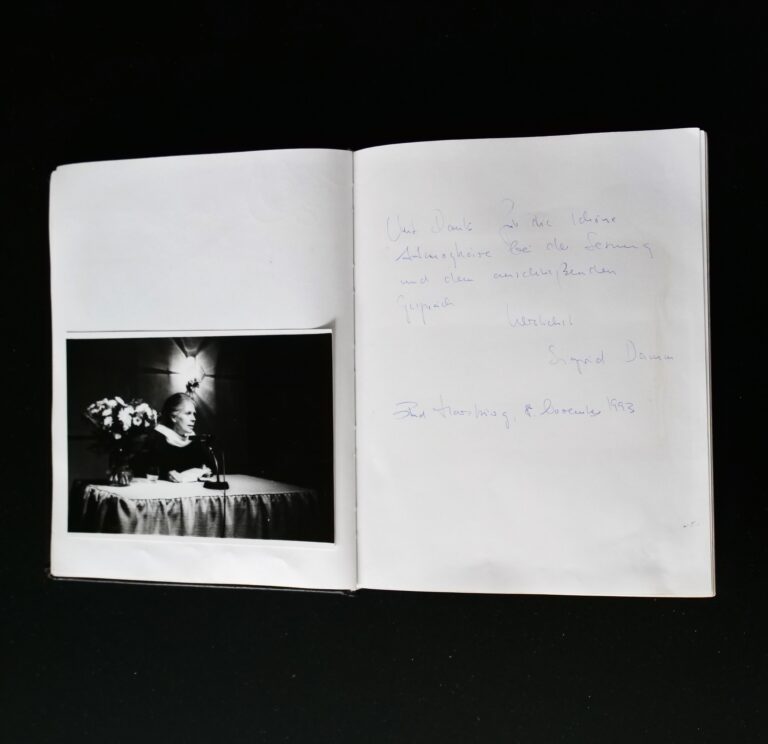 Mit Dank für die schöne
Atmosphäre bei der Lesung
und dem anschließenden
Gespräch
herzlichst
Sigrid Damm
Bad Harzburg, 8. November 1993